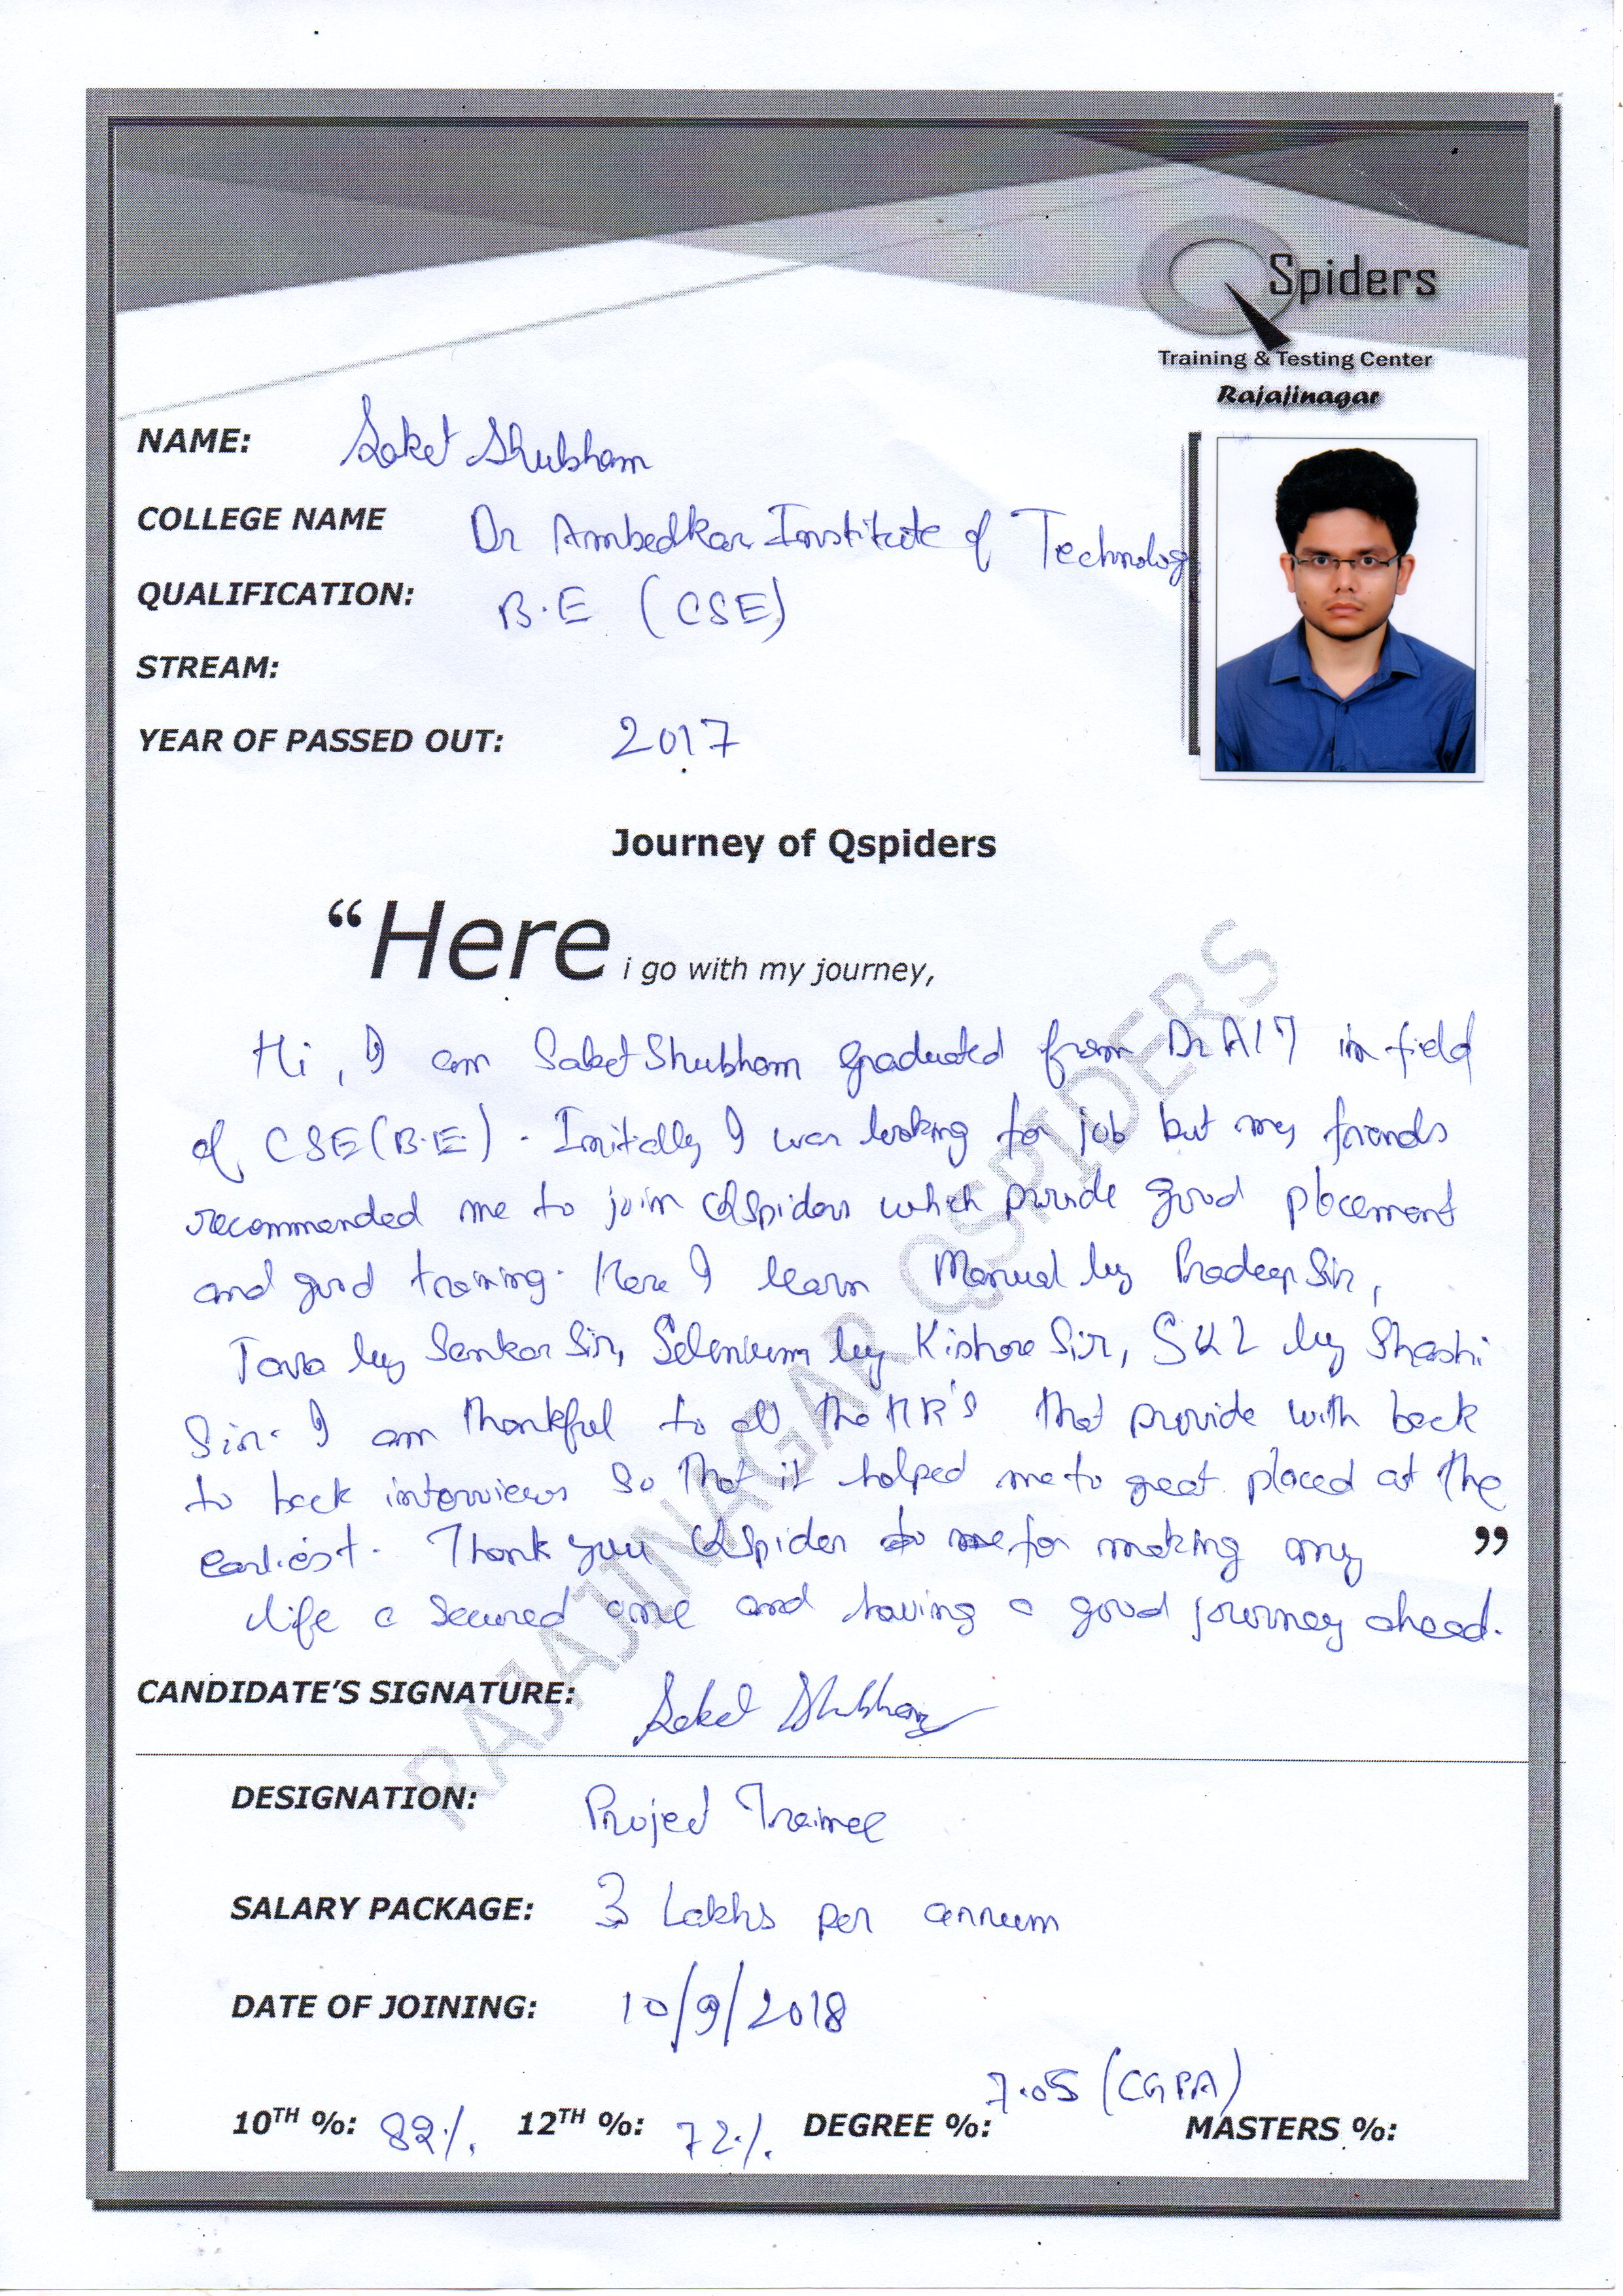 Spiders
Training & Testing Center
Rajajinagar
NAME: Saket Shubham
COLLEGE NAME Dr Ambedkar Institute of Technolog
QUALIFICATION: B.E (CSE)
STREAM:
YEAR OF PASSED OUT: 2017
Journey of Qspiders
“Here i go with my journey,
Hi, I am Saket Shubham graduated from Dr AIT in field
of CSE(B.E.). Initally I was looking for job but my friends
recommended me to join QSpiders which provide good placement
and good training. Here I learn Manual by Pradeep Sir,
Java by Sankar Sir, Selenium by Kishore Sir, SQL by Shashi
Sir. I am thankful to all the HR's that provide with back
to back interviews so that it helped me to great placed at the
earliest. Thank you QSpider for making my ”
life a secured one and having a good journey ahead.
CANDIDATE’S SIGNATURE: Saket Shubham
DESIGNATION: Project Trainee
SALARY PACKAGE: 3 Lakhs per annum
DATE OF JOINING: 10/9/2018
10TH %: 82% 12TH %: 72% DEGREE %: 7.05 (CGPA) MASTERS %:
RAJAJINAGAR QSPIDERS